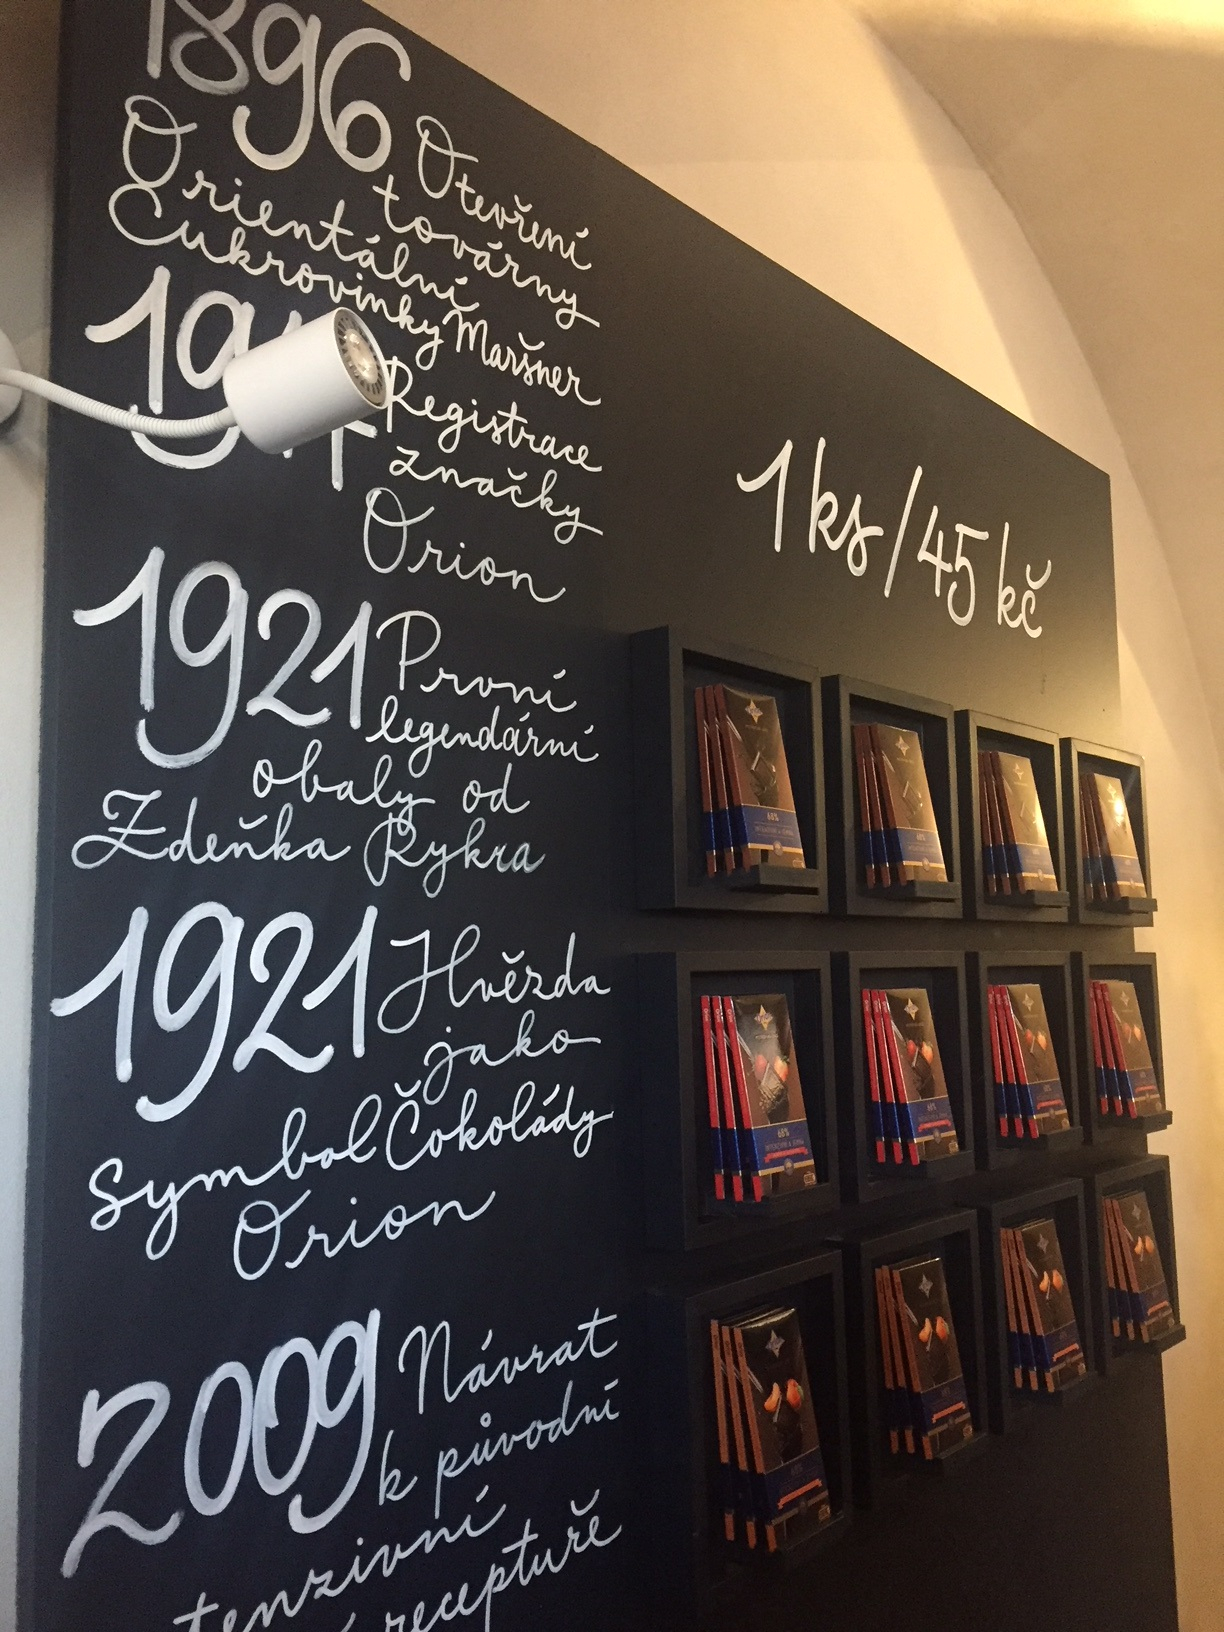 1896 Otevření
továrny
Orientální
Cukrovinky Maršner
Registrace
značky
Orion
1921 První
legendární
obaly od
Zdeňka Rykra
1921 Hvězda
jako
symbol Čokolády
Orion
2009 Návrat
k původní
tenzivní
recepturře
1ks/45 kč
68%
68%